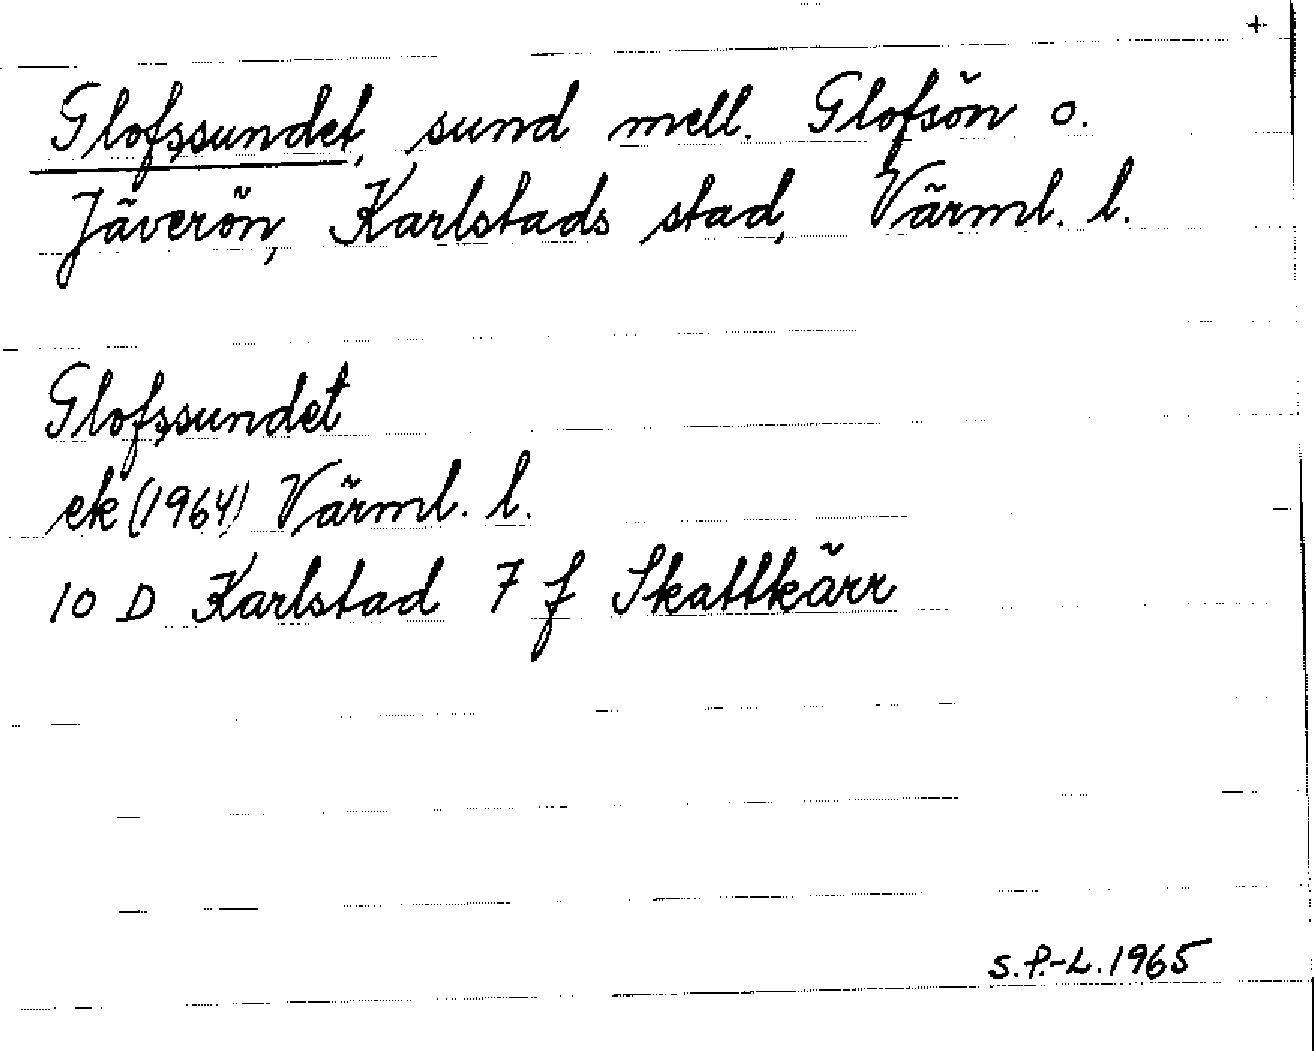 +
Glofssundet, sund mell. Glofsön o.
Jäverön, Karlstads stad, Värml. l.
Glofssundet
ek (1964) Värml. l.
10 D Karlstad 7 f Skattkärr
S.P.-L.1965